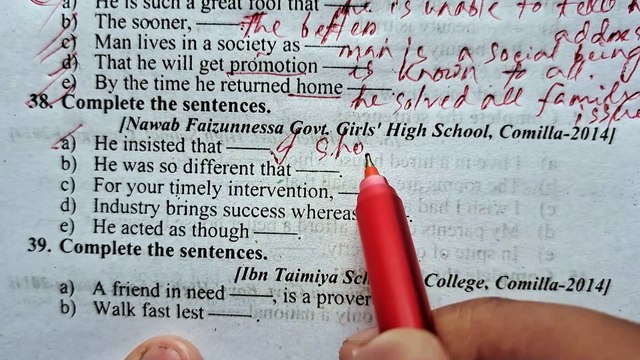 a) He is such a great fool that — he is unable to tell his
b) The sooner, — the better address
c) Man lives in a society as — man is a social being
d) That he will get promotion — is known to all.
e) By the time he returned home — he solved all family issue
38. Complete the sentences.
[Nawab Faizunnessa Govt. Girls' High School, Comilla-2014]
a) He insisted that —. I sho
b) He was so different that —.
c) For your timely intervention, —
d) Industry brings success whereas .
e) He acted as though —.
39. Complete the sentences.
[Ibn Taimiya Sc College, Comilla-2014]
a) A friend in need —, is a prover
b) Walk fast lest —.